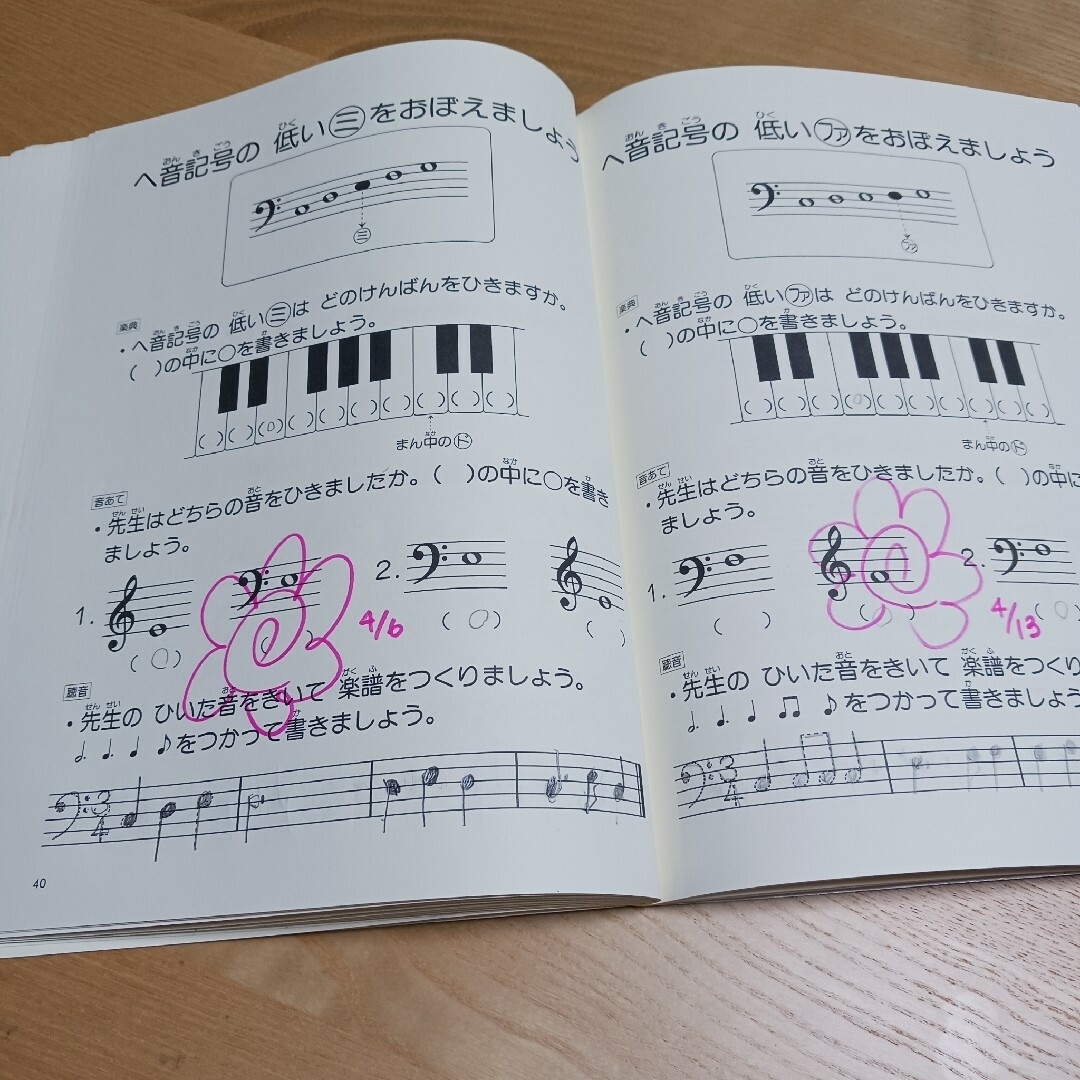 ヘ音記号の 低い㋯をおぼえましょう
おん き ごう ひく
㋯
楽典
・ヘ音記号の 低い㋯は どのけんばんをひきますか。
( )の中に○を書きましょう。
まん中の㋣
音あて
・先生はどちらの音をひきましたか。( )の中に○を書き
ましょう。
1.
2.
4/6
聴音
・先生の ひいた音をきいて 楽譜をつくりましょう。
をつかって書きましょう。
3
4
40
ヘ音記号の 低い㋫ァをおぼえましょう
ファ
楽典
・ヘ音記号の 低いファは どのけんばんをひきますか。
( )の中に○を書きましょう。
まん中の㋣
音あて
・先生はどちらの音をひきましたか。( )の中に
ましょう。
1.
2.
4/13
聴音
・先生の ひいた音をきいて 楽譜をつくり
をつかって書きましょう
3
4